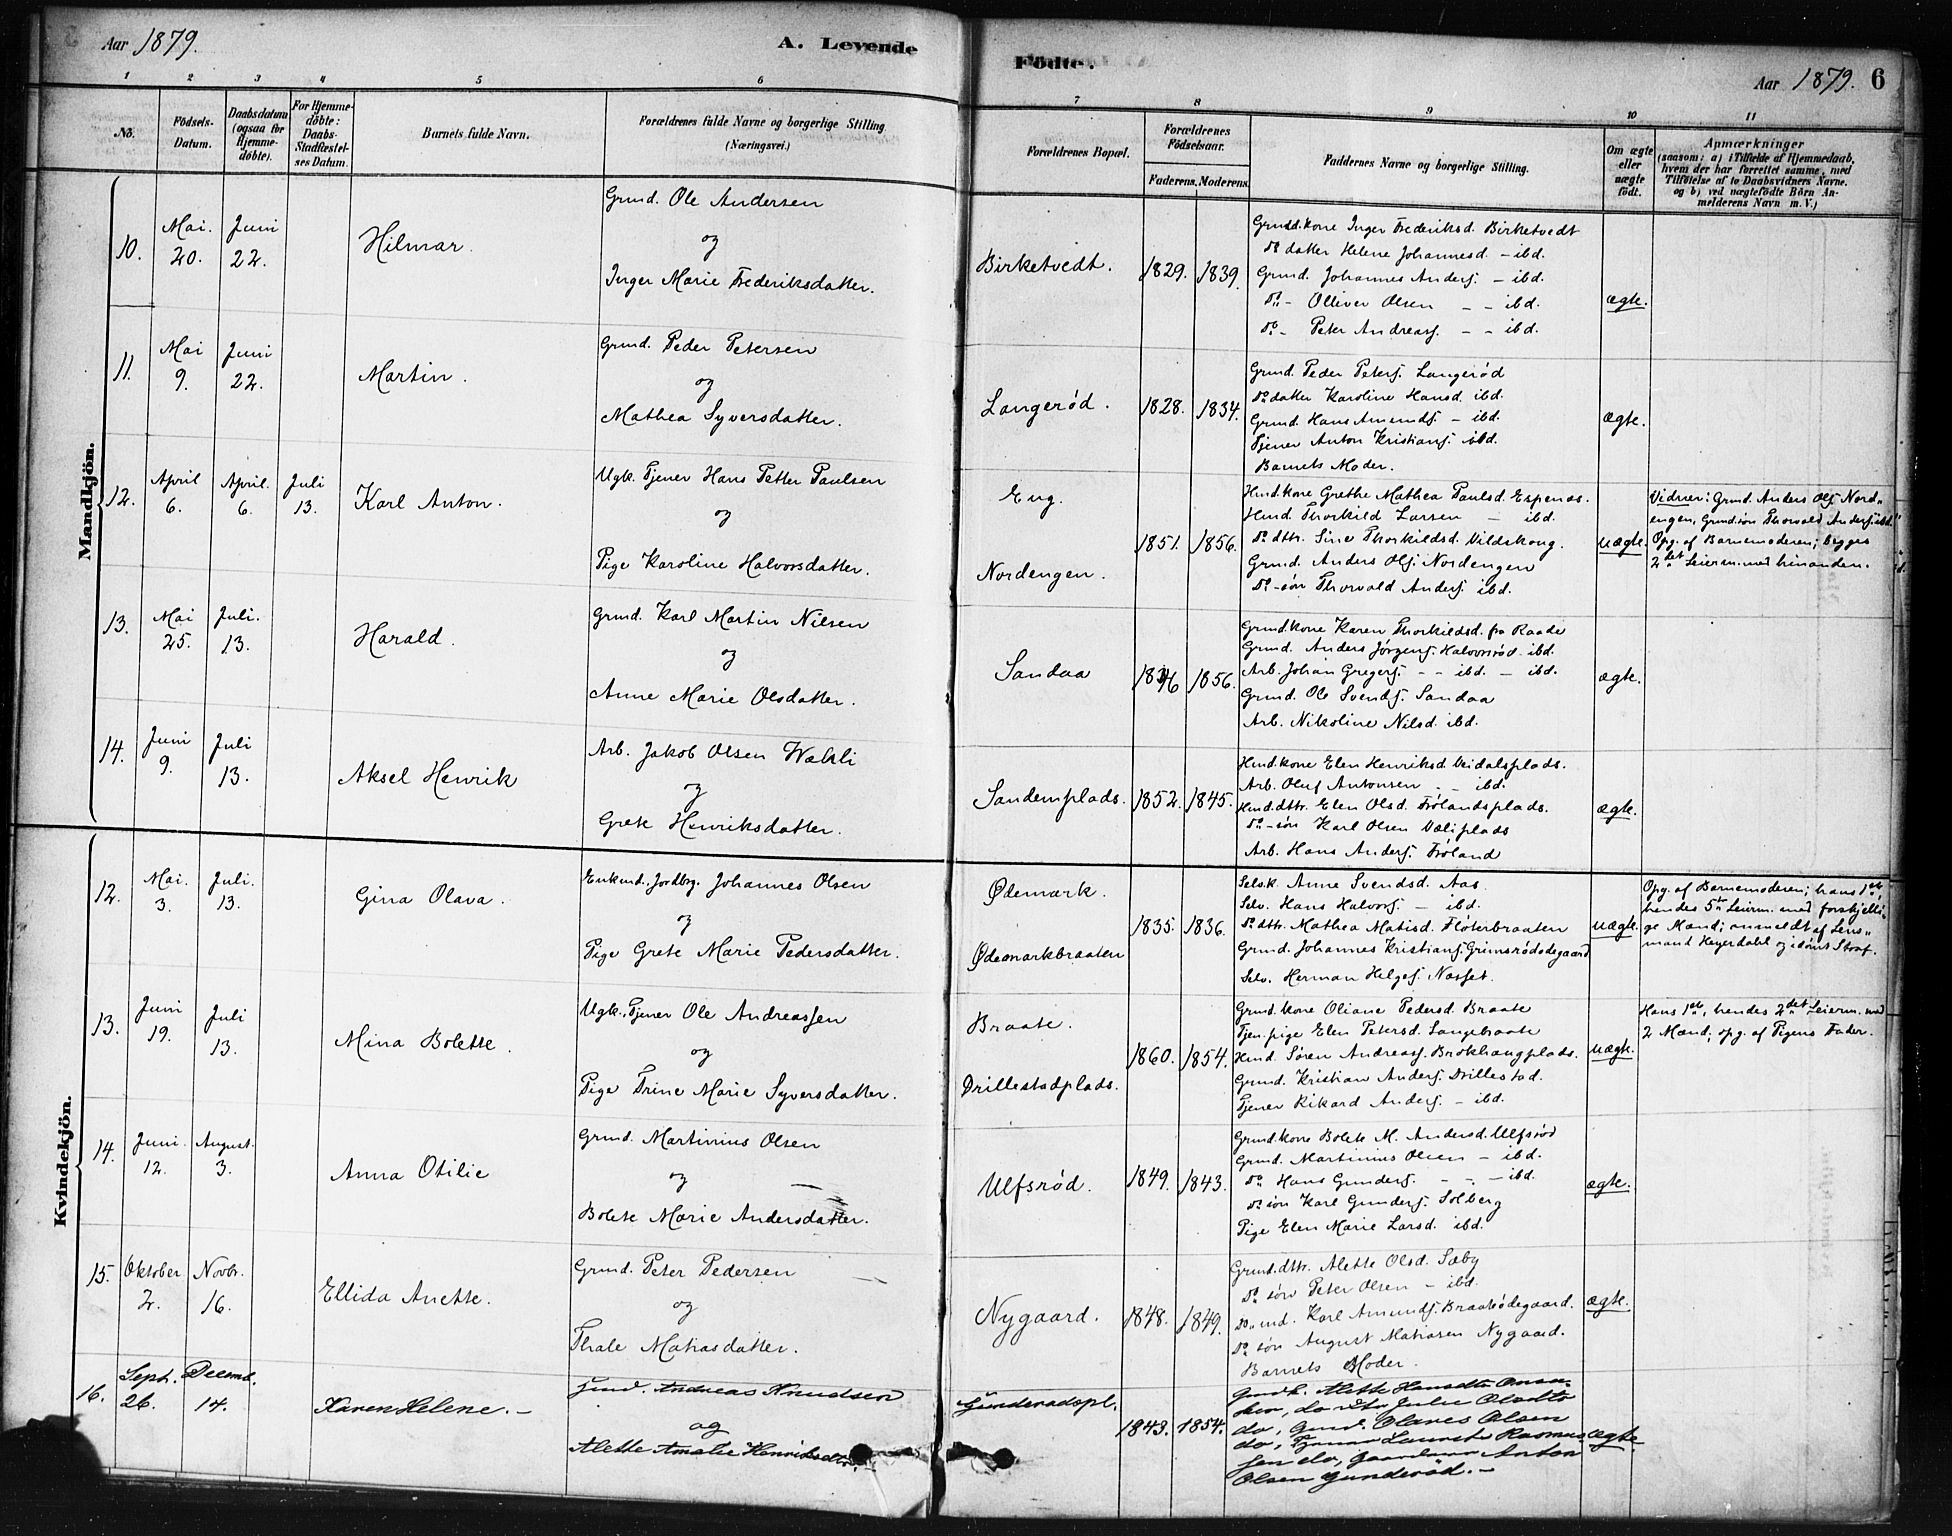 Aar 1879.
A. Levende
Födte.
Aar 1879. 6
1 2 3 4 5 6 7 8 9 10 11
No.
Födsels-Datum.
Daabsdatum (ogsaa for Hjemmedöbte).
For Hjemmedöbte: Daabs-Stadfæstelses Datum.
Barnets fulde Navn.
Forældrenes fulde Navne og borgerlige Stilling (Næringsvei.)
Forældrenes Bopæl.
Forældrenes Födselsaar.
Faderens. Moderens.
Faddernes Navne og borgerlige Stilling.
Om ægte eller uægte födt.
Apmærkninger
(saasom: a) i Tilfælde af Hjemmedaab,
hvem der har forrettet samme, med
Tilföielse af to Daabsvidners Navne.
og b) ved uægtefödte Börn An-
melderens Navn m. V.)
Mandkjön.
10.
Mai. 20.
Juni 22.
Hilmar.
Grmd. Ole Andersen
og
Inger Marie Frederiksdatter.
Birketvedt.
1829. 1839.
Grmd.kone Inger Frederiksd. Birketvedt
Do datter Helene Johannesd. - ibd.
Grmd. Johannes Anders. - ibd.
Do - Olliver Olsen - - ibd.
Do - Peter Andreas. - - ibd.
ægte.
11.
Mai 9.
Juni 22.
Martin.
Grmd. Peder Petersen
og
Mathea Syversdatter.
Langerød.
1828. 1834.
Grmd. Peder Peters. Langerød
Do datter Karoline Hansd. ibd.
Grmd. Hans Amunds. - ibd.
Tjener Anton Kristians. ibd.
Barnets Moder.
ægte.
12.
April 6.
April. 6.
Juli 13.
Karl Anton.
Ugk. Tjener Hans Petter Paulsen
og
Pige Karoline Halvorsdatter.
Eng.
Nordengen.
1851. 1856.
Hmd.kone Grethe Mathea Paulsd. Espenes.
Hmd. Thorkild Larsen - ibd.
Do dttr. Sine Thorkildsd. Vildskong.
Grmd. Anders Ols. Nordengen
Do -søn Thorvald Anders. ibd.
uægte.
Vidner: Grmd. Anders Ols. Nord-
engen, Grmd.søn Thorvald Anders. ibd.
Opg. af Barnemoderen; begges
2det Leierm. med hinanden.
13.
Mai 25.
Juli. 13.
Harald.
Grmd. Karl Martin Nilsen
og
Anne Marie Olsdatter.
Sandaa
1856.
Grmd.kone Karen Thorkildsd. fra Raade
Grmd. Anders Jørgens. Halvorsrød. ibd.
Arb. Johan Gregers. - - ibd. - ibd.
Grmd. Ole Svends. Sandaa
Arb. Nikoline Nilsd. ibd.
ægte.
14.
Juni 9.
Juli 13.
Aksel Henrik
Arb. Jakob Olsen Wæhli
og
Grete Henriksdatter.
Sandemplads.
1852. 1845.
Hmd.kone Elen Henriksd. Veidalsplads.
Arb. Oluf Antonsen - - ibd.
Hmd.dttr. Elen Olsd. Frølandsplads.
Do -søn Karl Olsen Væliplads
Arb. Hans Anders. Frøland
ægte.
Kvindekjön.
12.
Mai. 3.
Juli. 13.
Gina Olava.
Enkmd., Jordbrg. Johannes Olsen
og
Pige Grete Marie Pedersdatter.
Ødemark.
Ødemarkbraaten
1835. 1836.
Selv.k. Anne Svendsd. Aas.
Selv. Hans Halvors. - ibd.
Do dttr. Mathea Matisd. Fløterbraaten
Grmd. Johannes Kristians. Grimsrødødegaard
Selv. Herman Helges. Næsset.
uægte.
Opg. af Barnemoderen; hans 1ste,
hendes 5te Leierm. med forskjelli-
ge Mænd; anmeldt af Lens-
mand Heyerdahl og idømt Straf.
13.
Juni 19.
Juli 13.
Mina Bolette.
Ugk., Tjener Ole Andreassen
og
Pige Trine Marie Syversdatter.
Braate.
Drillestadplads.
1860. 1854.
Grmd.kone Oliane Pedersd. Braate
Tjen.pige Elen Petersd. Langbraate
Hmd. Søren Andreas. Brokhaugplads.
Grmd. Kristian Anders. Drillestad.
Tjener Rikard Anders. - ibd.
uægte.
Hans 1ste, hendes 2det Leierm. med
2 Mænd; opg. af Pigens Fader.
14.
Juni. 12.
August. 3.
Anna Otilie
Grmd. Martinius Olsen
og
Bolete Marie Andersdatter.
Ulfsrød.
1849. 1843.
Grmd.kone Bolete M. Andersd. Ulfsrød
Grmd. Martinius Olsen - ibd.
Do Hans Gunders. - - - ibd.
Do søn Karl Gunders. Solberg
Pige Elen Marie Larsd. ibd.
ægte.
15.
Oktober 2.
Novbr. 16.
Ellida Anette.
Grmd. Peter Pedersen
og
Thale Matiasdatter.
Nygaard.
1848. 1849.
Grmd.dttr. Alette Olsd. Sæby
Do søn Peter Olsen - ibd.
Do md. Karl Amunds. Braatødegaard.
Do søn August Matiasen Nygaard.
Barnets Moder.
ægte.
16.
Sept. 26.
Decemb. 14.
Karen Helene. -
Gmd. Andreas Knudsen
og
Alette Amalie Henriksdtr. -
Gunderødspl.
1843. 1854.
Gmdk. Alette Hansdtr
Julie Olsdtr
do, Gmd. Olaves Olsen
do, Tjener Laurits Rasmus
sen do, Anton
Olsen Gunderød. -
ægte